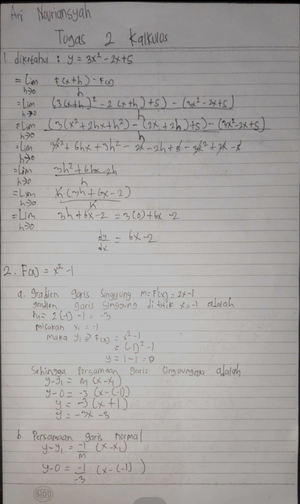 Ari Nourmansyah
Tugas 2 Kalkulus
1. diketahui : y = 3x² - 2x + 5
= Lim h→0 F(x+h) - F(x) / h
= Lim h→0 (3(x+h)² - 2(x+h) + 5) - (3x² - 2x + 5) / h
= Lim h→0 (3(x² + 2hx + h²) - (2x + 2h) + 5) - (3x² - 2x + 5) / h
= Lim h→0 3x² + 6hx + 3h² - 2x - 2h + 5 - 3x² + 2x - 5
= Lim h→0 3h² + 6hx - 2h / h
= Lim h→0 h (3h + 6x - 2) / h
= Lim h→0 3h + 6x - 2 = 3(0) + 6x - 2
dy/dx = 6x - 2
2. F(x) = x² - 1
a. Gradien garis Singgung m = F'(x) = 2x - 1
gradien garis Singgung di titik x = -1 adalah
m = 2(-1) - 1 = -3
misalkan x₁ = -1
maka y₁ = F(x) = x² - 1
= (-1)² - 1
y = 1 - 1 = 0
Sehingga Persamaan garis Singgungnya adalah
y - y₁ = m (x - x₁)
y - 0 = -3 (x - (-1))
y = -3 (x + 1)
y = -3x - 3
b. Persamaan garis normal
y - y₁ = -1/m (x - x₁)
y - 0 = -1/-3 (x - (-1))